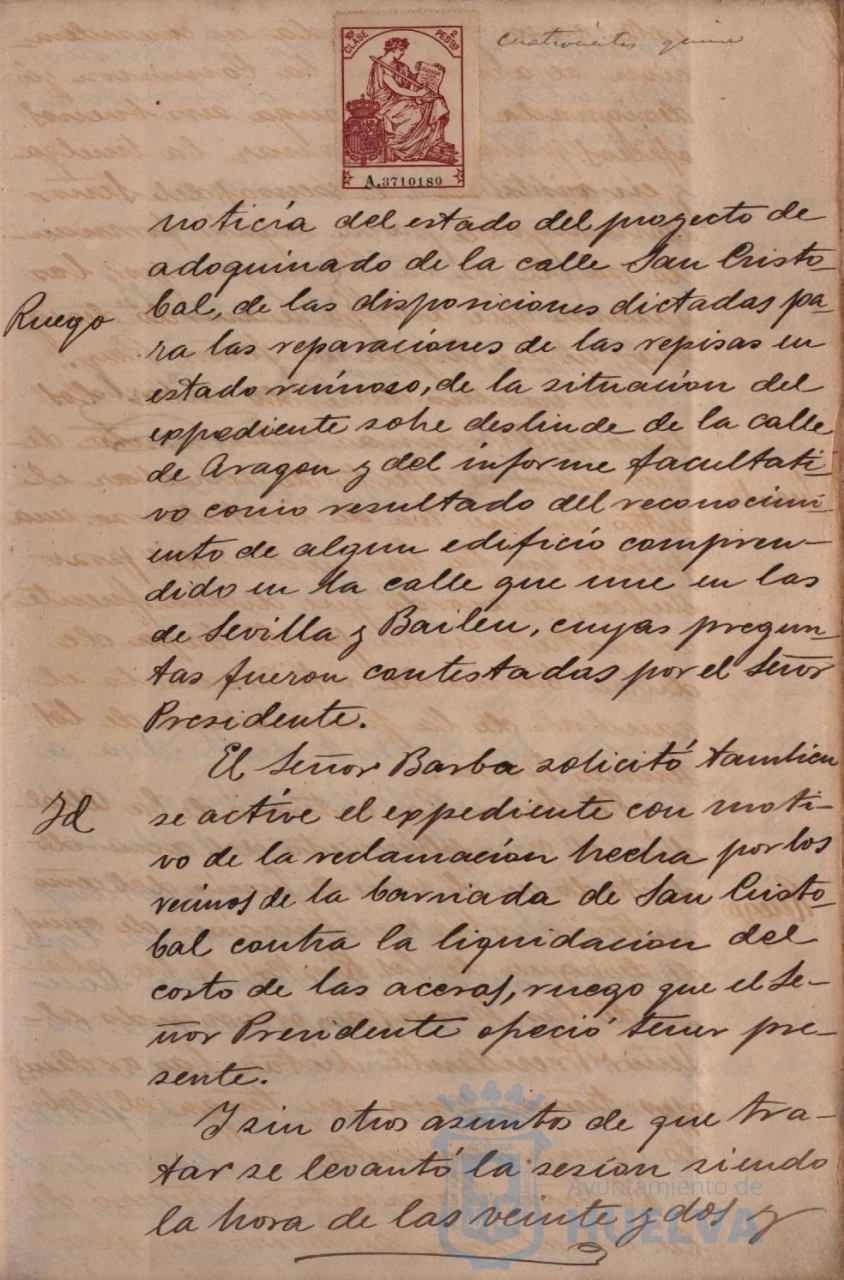 cuatrocientos quince
10ª CLASE 2 PESTAS
A.3710180
noticia del estado del proyecto de
adoquinado de la calle San Cristo-
Ruego
bal, de las disposiciones dictadas pa-
ra las reparaciones de las repisas en
estado ruinoso, de la situacion del
expediente sobre deslinde de la calle
de Aragon y del informe facultati-
vo como resultado del reconocimi-
ento de algun edificio compren-
dido en la calle que une en las
de Sevilla y Bailen, cuyas pregun-
tas fueron contestadas por el Señor
Presidente.
El Señor Barba solicitó tambien
Id
se active el expediente con moti-
vo de la reclamacion hecha por los
vecinos de la barriada de San Cristo-
bal contra la liquidacion del
costo de las aceras, ruego que el Se-
ñor Presidente ofreció tener pre-
sente.
Y sin otros asuntos de que tra-
tar se levantó la sesion siendo
la hora de las veinte y dos y
Ayuntamiento de
HUELVA